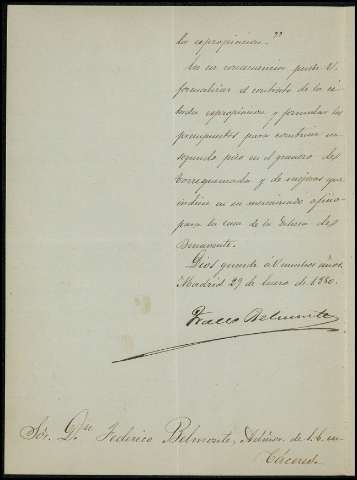 la espropiacion."
En su consecuencia puede V.
formalizar el contrato de la ci-
tada espropiacion y formular los
presupuestos para construir un
segundo piso en el granero de
Torrequemada y de mejoras que
indica en su mencionado oficio
para la casa de la dehesa de
Benavente.
Dios guarde á V. muchos años.
Madrid 29 de Enero de 1880.
Belmonte
Sor. Dn. Federico Belmonte, Admor. de S.E. en
Cáceres.